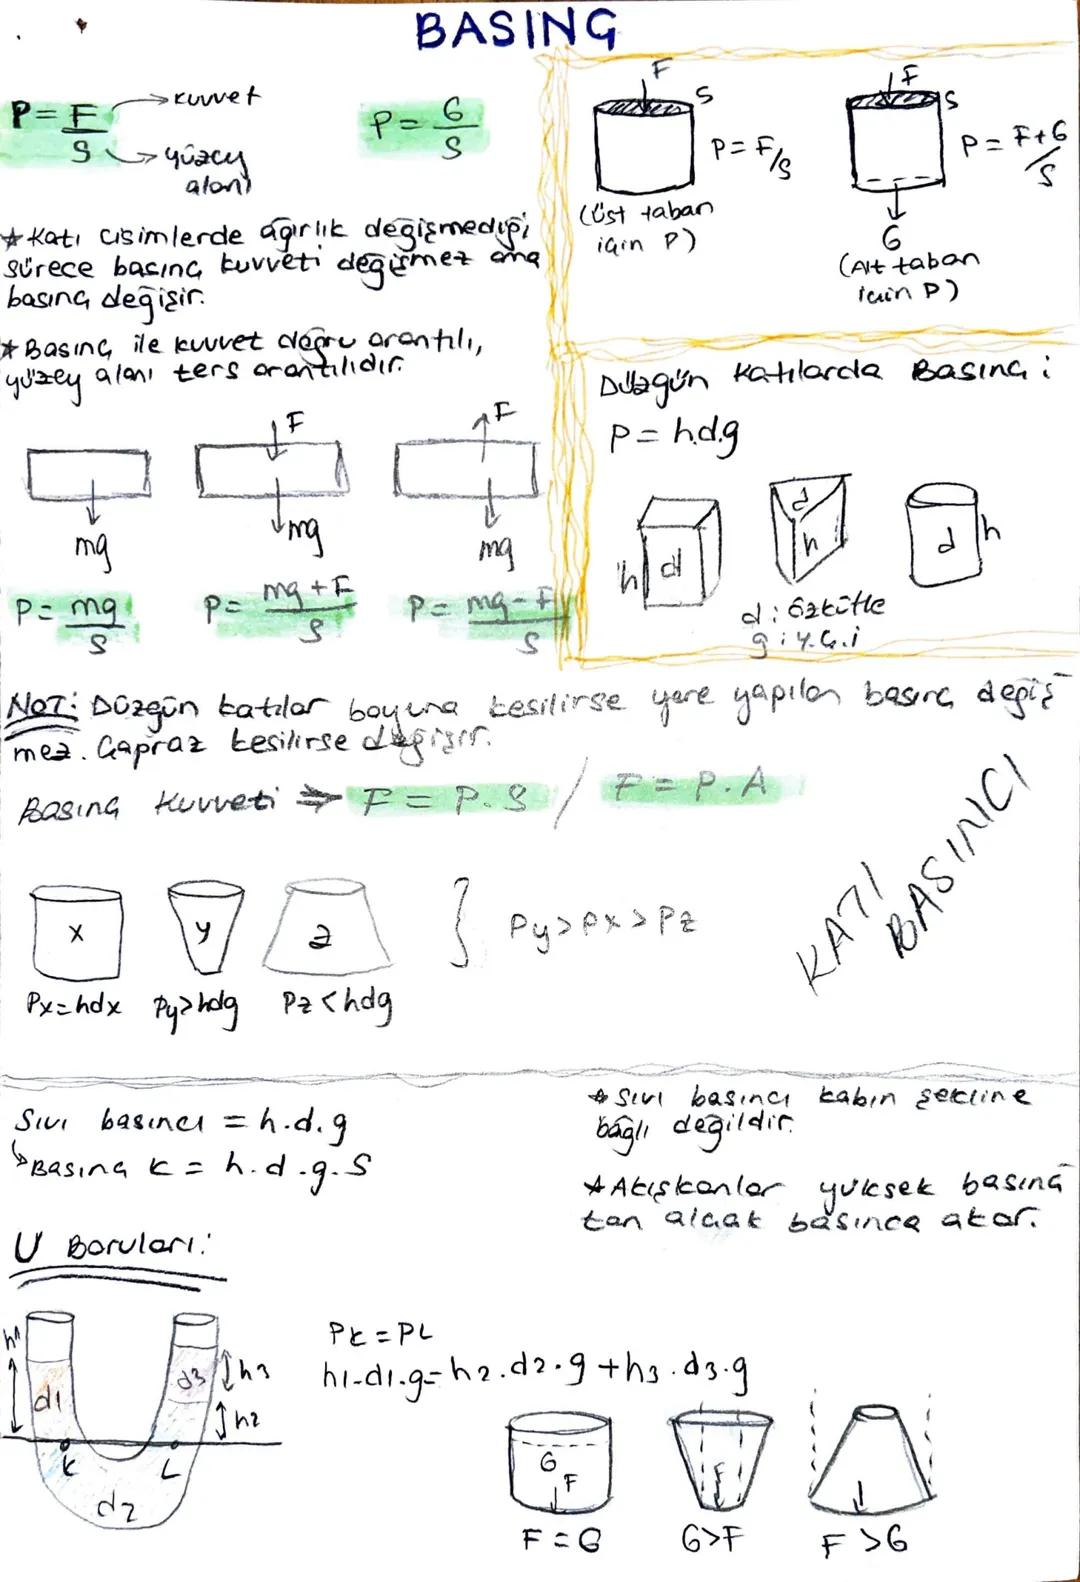 BASINÇ
P = F/S
→ kuvvet
→ yüzey alanı
P = G/S
★ Katı cisimlerde ağırlık değişmediği
sürece basınç kuvveti değişmez ama
basınç değişir.
★ Basınç ile kuvvet doğru orantılı,
yüzey alanı ters orantılıdır.
F
F
mg
mg
mg
P = mg/S
P = mg + F/S
P = mg - F/S
F
S
P = F/S
(Üst taban
için P)
F
S
P = F+G/S
G
(Alt taban
için P)
Düzgün Katılarda Basınç :
P = h.d.g
h d
d h
d h
d : özkütle
g : y.ç.i
NOT: Düzgün katılar boyuna kesilirse yere yapılan basınç değiş
mez. Çapraz kesilirse değişir.
Basınç Kuvveti ⇒ F = P.S / F = P.A
KATI
BASINCI
x y z } Py>Px>Pz
Px=hdx Py>hdg Pz<hdg
Sıvı basıncı = h.d.g
↳Basınç K = h.d.g.S
★ Sıvı basıncı kabın şekline
bağlı değildir.
★ Akışkanlar yüksek basınç
tan alçak basınca akar.
U Boruları:
h1 d1 d3 h3
h2
K L
d2
PK = PL
h1.d1.g = h2.d2.g + h3.d3.g
G F
F
F = G
G>F
F >G